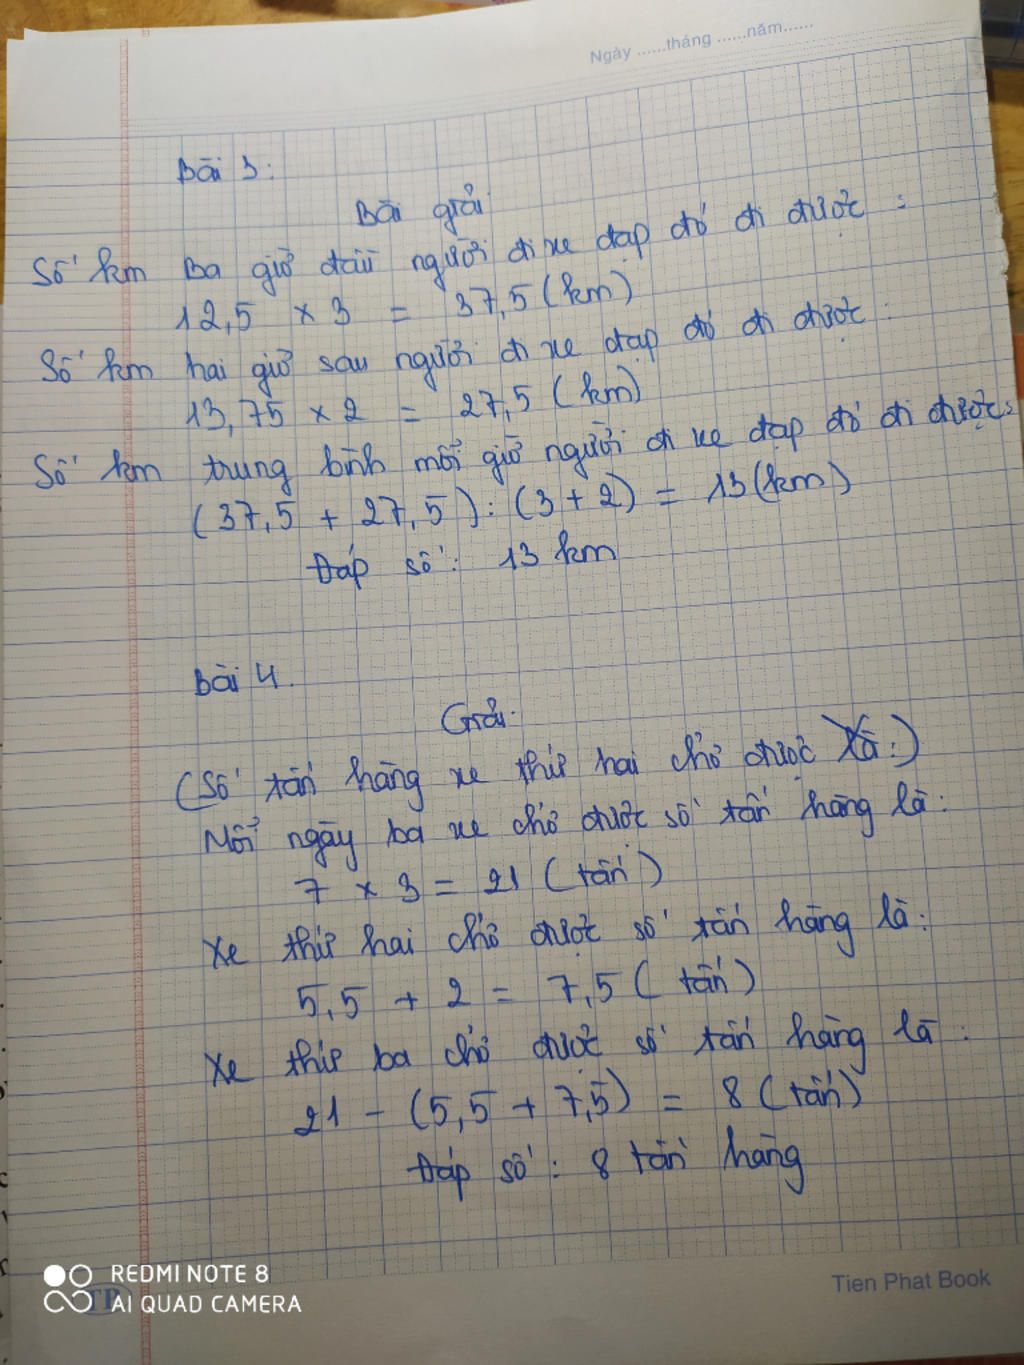 Ngày ......tháng ......năm......
Bài 3:
Bài giải
Số km ba giờ đầu người đi xe đạp đó đi được :
12,5 x 3 = 37,5 (km)
Số km hai giờ sau người đi xe đạp đó đi được :
13,75 x 2 = 27,5 (km)
Số km trung bình mỗi giờ người đi xe đạp đó đi được:
(37,5 + 27,5) : (3 + 2) = 13 (km)
Đáp số : 13 km
Bài 4.
Giải:
(Số tấn hàng xe thứ hai chở được là:)
Mỗi ngày ba xe chở được số tấn hàng là:
7 x 3 = 21 (tấn)
Xe thứ hai chở được số tấn hàng là:
5,5 + 2 = 7,5 (tấn)
Xe thứ ba chở được số tấn hàng là :
21 - (5,5 + 7,5) = 8 (tấn)
Đáp số : 8 tấn hàng
REDMI NOTE 8
AI QUAD CAMERA
TP
Tien Phat Book